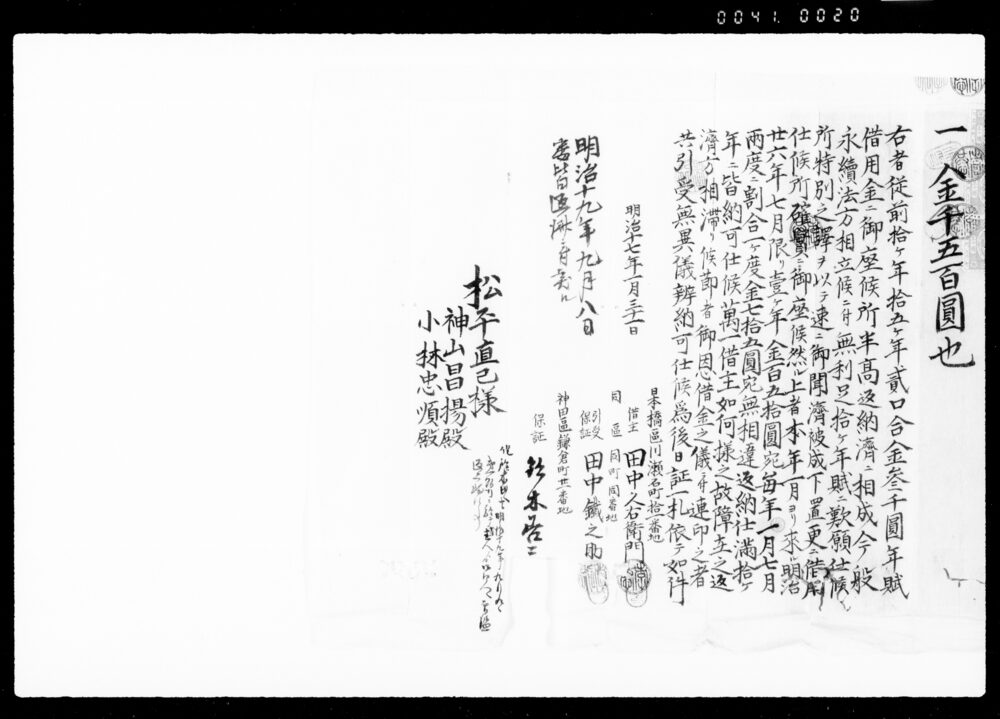 0041. 0020
一 金千五百圓也
右者従前拾ヶ年拾五ヶ年貳口合金叁千圓年賦
借用金ニ御座候所半高返納濟ニ相成今般
永續法方相立候ニ付無利足拾ヶ年賦ニ歎願仕候
所特別之譯ヲ以テ速ニ御聞濟被成下置更ニ借用
仕候所確實ニ御座候然ル上者本年一月ヨリ来ル明治
廿六年七月限リ壹ヶ年金百五拾圓宛毎年一月七月
兩度ニ割合一ヶ度金七拾五圓宛無相違返納仕満拾ヶ
年ニ皆納可仕候萬一借主如何様之故障主之返
濟方相滞リ候節者御恩借金之儀ニ付連印之者
共引受無異儀辨納可仕候為後日証一札依テ如件
明治十七年一月三十一日
日本橋區川瀬石町拾一番地
借主 田中久右衛門
同區同町同番地
引受保証 田中鐵之助
神田區鎌倉町廿一番地
保証 鈴木
明治十九年九月八日
松平直己様
神山昌揚殿
小林忠順殿